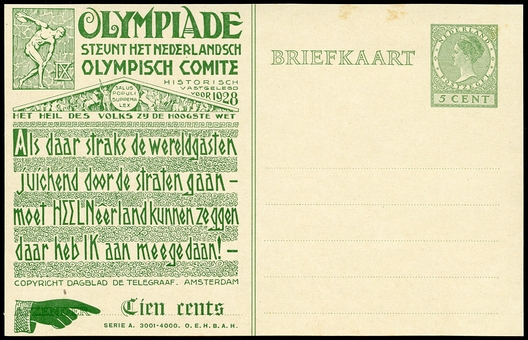 OLYMPIADE
STEUNT HET NEDERLANDSCH
OLYMPISCH COMITE
HISTORISCH
VASTGELEGD
VOOR 1928
IX
SALUS
POPULI
SUPPREMA
LEX
HET HEIL DES VOLKS ZY DE HOOGSTE WET
Als daar straks de wereldgasten
juichend door de straten gaan —
moet HEEL Neêrland kunnen zeggen
daar heb IK aan meegedaan! —
COPYRIGHT DAGBLAD DE TELEGRAAF. AMSTERDAM
Tien cents
SERIE A. 3001-4000. O. E. H. B. A. H.
BRIEFKAART
NEDERLAND
5 CENT